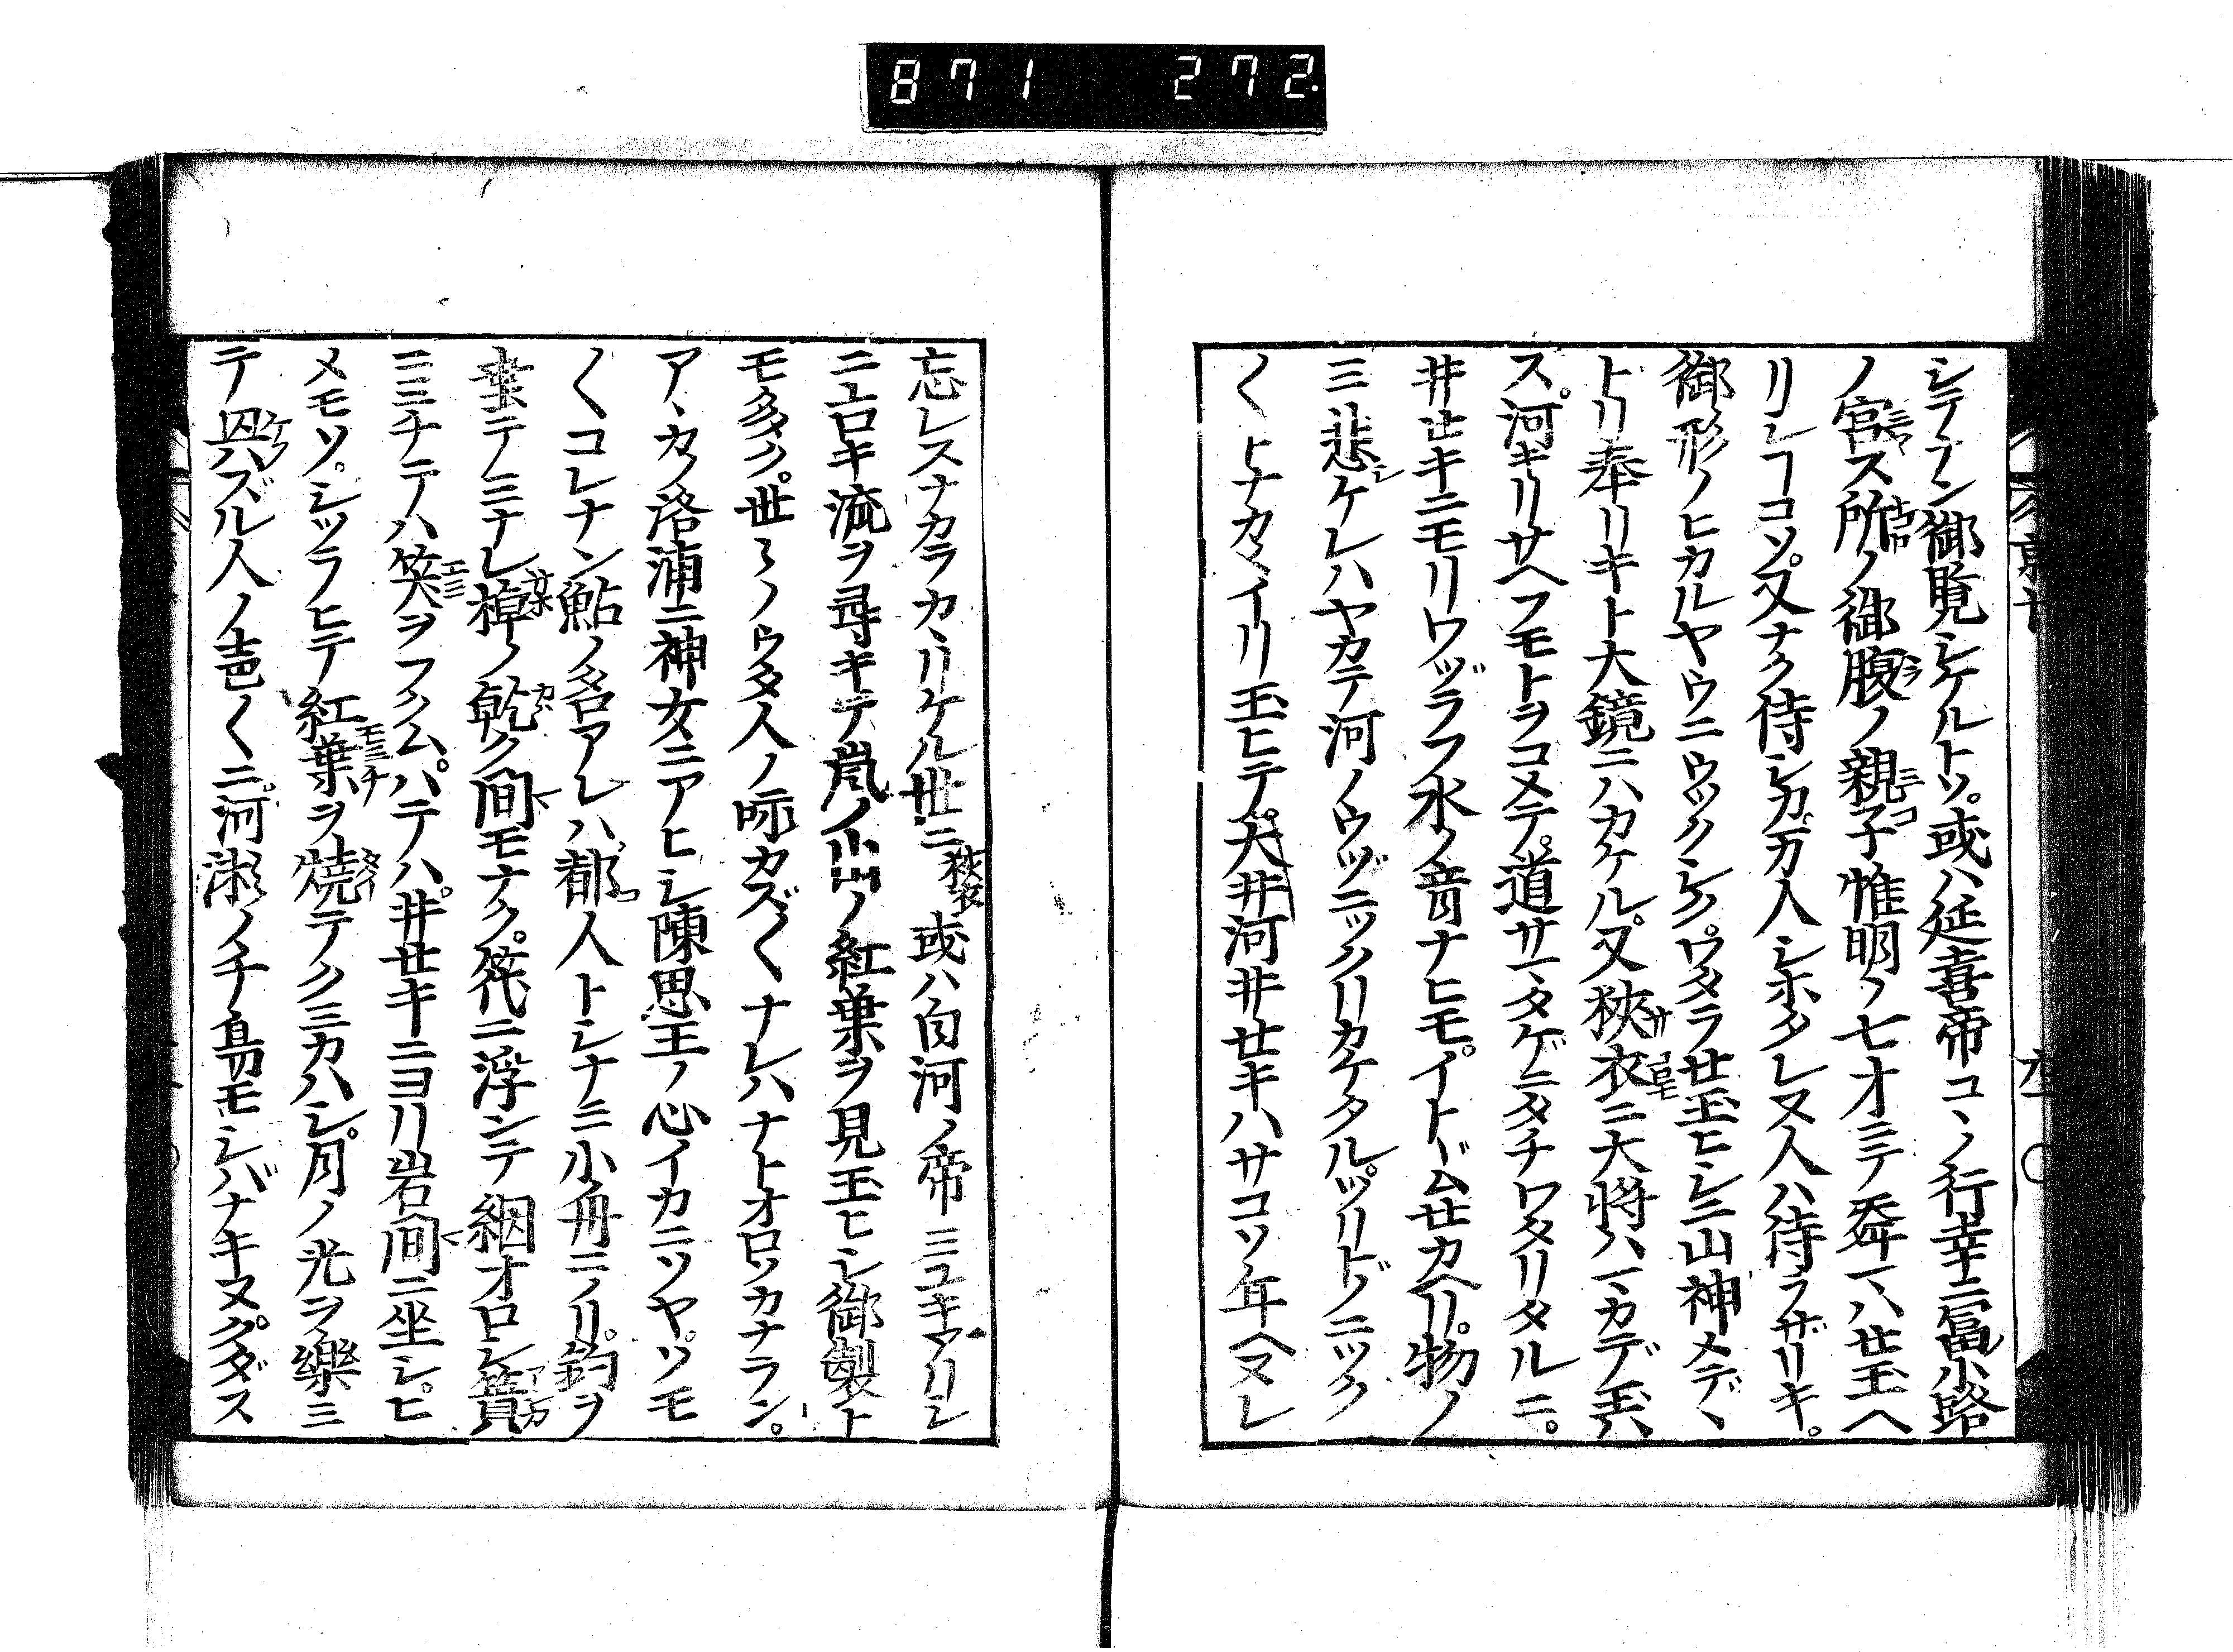 871 272.
シテナン御覧シケルトソ。或ハ延喜帝コヽノ行幸ニ富小路
ノ宮ス所ノ御腹ノ親子惟明ノ七才ニテ舜マハせ玉ヘ
リシヿコソ。又ナク侍シカ。万人シホタレヌ人ハ侍ラザリキ。
御形ノヒカルヤウニウツクシケ。ワタラせ玉ヒシニ山神メデヽ
トリ奉リキト大鏡ニハカケル。又狭衣ニ大将ハマカデ玉ハ
ス。河キリサヘフモトヲコメテ。道サマタゲニタチワタリタルニ。
井せキニモリワヅラフ水ノ音ナヒモ。イトヾムせカヘリ。物ノ
ミ悲ケレハヤカテ河ノウヅニツクリカケタル。ツリドノニツク
〱トナカメイリ玉ヒテ。大井河井せキハサコソ年ヘヌレ
忘レスナカラカハリケル世ニ狭衣 或ハ白河ノ帝ミユキアリシ
ニエロキ流ヲ尋キテ嵐ノ小山ノ紅葉ヲ見玉ヒシ御製ト
モ多ク。世〻ノウタ人ノ詠カズ〱ナレハナトオロソカナラン。
アヽカノ洛浦ニ神女ニアヒシ陳思王ノ心イカニツヤ〱ソモ
〱コレナン鮎ノ名アレハ都人トシナミ小舟ニノリ。釣ヲ
垂テノミナレ棹ノ乾ク間モナク。筏ニ浮シテ網オロシ簀
ニミチテハ笑ヲフクム。ハテハ。井せキニヨリ岩間ニ坐シヒ
メモソ。シツラヒテ紅葉ヲ焼テクミカハシ。月ノ光ヲ樂ミ
テ興ズル人ノ邑〱ニ。河瀬ノチ鳥モシバナキヌ。クダス